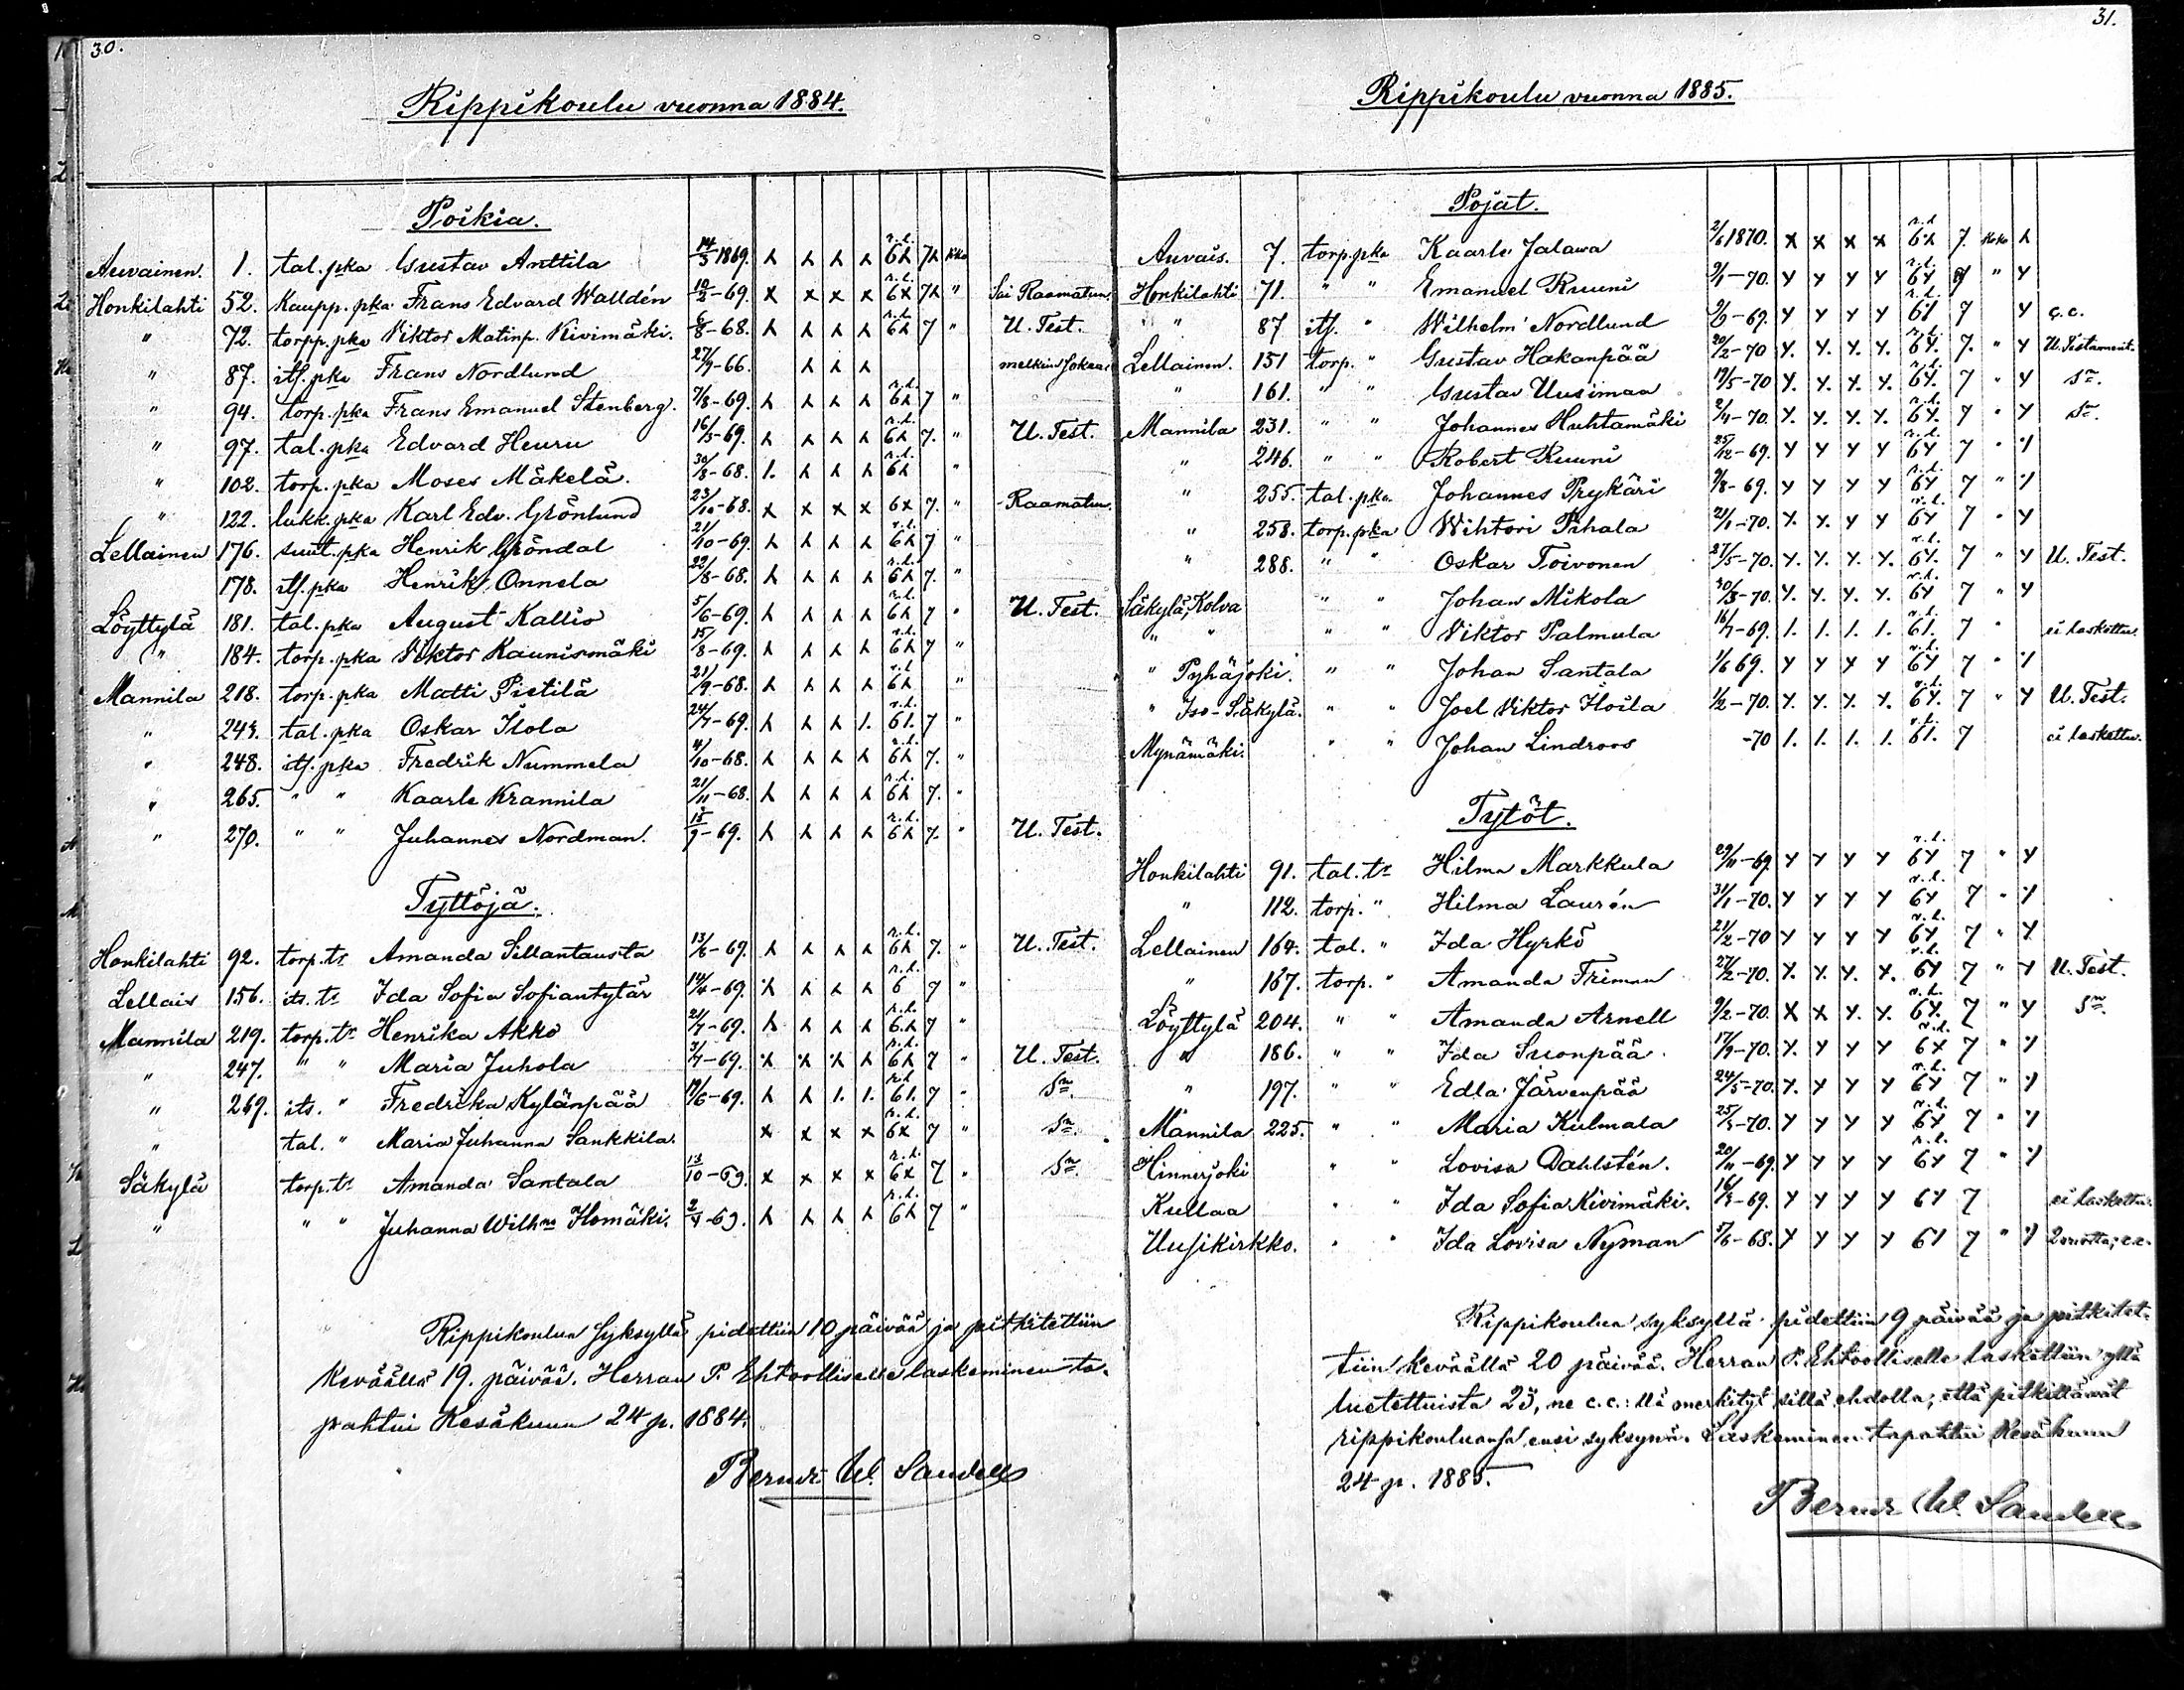 30.
Rippikoulu vuonna 1884.
Poikia.
Auvainen. 1. tal. pka Gustav Anttila 14/3 1869. r.l. 6 7 Koko
Honkilahti 52. Kaupp. pka Frans Edvard Walldén 10/2-69. x x x x r.l. 6x 7 " Sai Raamatun.
" 72. torpp. pka Viktor Matinp. Kivimäki. 6/8-68. r.l. 6 7 " U. Test.
" 87. itf. pka Frans Nordlund 27/9-66. melkein
" 94. torp. pka Frans Emanuel Stenberg. 7/8-69. r.l. 6 7 "
" 97. tal. pka Edvard Heuru 16/5-69. r.l. 6 7. " U. Test.
" 102. torp. pka Moses Mäkelä. 30/8-68. r.l. 6 "
" 122. lukk. pka Karl Edv. Grönlund 23/10-68. x x x x 6x 7. " Raamatun.
Lellainen 176. suut. pka Henrik Gröndal 21/10-69. r.l. 6 7 "
178. itf. pka Henrik Onnela 22/8-68. r.l. 6 7. "
Löyttylä 181. tal. pka August Kallio 5/6-69. r.l. 6 7 " U. Test.
" 184. torp. pka Viktor Kaunismäki 15/8-69. r.l. 6 7 "
Mannila 218. torp. pka Matti Pietilä 21/9-68. r.l. 6 "
" 243. tal. pka Oskar Ilola 24/7-69. r.l. 6 7 "
" 248. itf. pka Fredrik Nummela 4/10-68. r.l. 6 7. "
" 265. " " Kaarle Krannila 21/11-68. r.l. 6 7. "
" 270. " " Juhannes Nordman. 15/9-69. r.l. 6 7. " U. Test.
Tyttöjä.
Honkilahti 92. torp. tr Amanda Sillantausta 13/6-69. r.l. 6 7. " U. Test.
Lellais 156. its. tr Ida Sofia Sofiantytär 14/4-69. r.l. 6 7 "
Mannila 219. torp. tr Henrika Akko 21/7-69. r.l. 6 7 "
" 247. " " Maria Juhola 3/7-69. r.l. 6 7 " U. Test.
" 269. its. " Fredrika Kylänpää 19/6-69. r.l. 6 7 " Sn.
" tal. " Maria Juhanna Sankkila. x x x x r.l. 6x 7 " Sn.
Säkylä torp. tr Amanda Santala 13/10-69. x x x x r.l. 6x 7 " Sn.
" " " Juhanna Wilhna Ilomäki. 2/4-69. r.l. 6 7 "
Rippikoulua syksyllä pidettiin 10 päivää ja pitkitettiin
keväällä 19. päivää. Herran P. Ehtoolliselle laskeminen ta-
pahtui Kesäkuun 24 p. 1884.
Berndt W. Sandell
31.
Rippikoulu vuonna 1885.
Pojat.
Auvais. 7. torp. pka Kaarle Jalawa 2/6 1870. x x x x r.l. 6 7. Koko
Honkilahti 71. " " Emanuel Ruuni 9/1-70. r.l. 6 "
" 87 itf. " Wilhelm Nordlund -69. r.l. 6 7 c.c.
Lellainen. 151 torp. " Gustav Hakanpää 20/2-70 r.l. 6 7. " U. Testament.
" 161. " " Gustav Uusimaa 19/5-70 r.l. 6 7 " Sn.
Mannila 231. " " Johannes Huhtamäki 2/4-70. r.l. 6 7 " Sn.
" 246. " " Robert Ruuni 25/12-69. r.l. 6 7 "
" 255. tal. pka. Johannes Prykäri 9/8-69. r.l. 6 7 "
" 258. torp. pka Wihtori Pihala 21/1-70. r.l. 6 7 "
" 288. " " Oskar Toivonen 27/5-70. r.l. 6 7 " U. Test.
Säkylä, Kolva " " Johan Mikola 30/3-70. r.l. 6 7 "
" " " " Viktor Palmula 16/7-69. 1. 1. 1. 1. r.l. 61. 7 " ei laskettu.
" Pyhäjoki. " " Johan Santala 1/6 69. r.l. 6 7 "
" Iso-Säkylä. " " Joel Viktor Iloila 1/2-70. r.l. 6 7 " U. Test.
Mynämäki. " " Johan Lindroos -70 1. 1. 1. 1. r.l. 61. 7 ei laskettu.
Tytöt.
Honkilahti 91. tal. tr Hilma Markkula 29/11-69 r.l. 6 7 "
" 112. torp. " Hilma Laurén 31/1-70. r.l. 6 7 "
Lellainen 164. tal. " Ida Hyrkö 21/2-70 r.l. 6 7 "
" 167. torp. " Amanda Friman 27/2-70. r.l. 6 7 " U. Test.
Löyttylä 204. " " Amanda Arnell 9/2-70. r.l. 6 7 " Sn.
" 186. " " Ida Suonpää. 17/9-70. r.l. 6 7 "
" 197. " " Edla Järvenpää 24/5-70. r.l. 6 7 "
Mannila 225. " " Maria Kulmala 25/3-70. r.l. 6 7 "
Hinnerjoki " " Lovisa Dahlstén. 20/11-69. r.l. 6 7 "
Kullaa " " Ida Sofia Kivimäki. 16/3-69. 6 7 ei laskettu.
Uusikirkko. " " Ida Lovisa Nyman 5/6-68. 6 7 " 2 vuotta; c.c.
Rippikoulua syksyllä pidettiin 9 päivää ja pitkitet-
tiin keväällä 20 päivää. Herran P. Ehtoolliselle laskettiin yllä
luetettuista 23, ne c.c.:llä merkityt sillä ehdolla, että pitkittävät
rippikouluansa ensi syksynä. Laskeminen tapahtui Kesäkuun
24 p. 1885.
Bernd W. Sandell